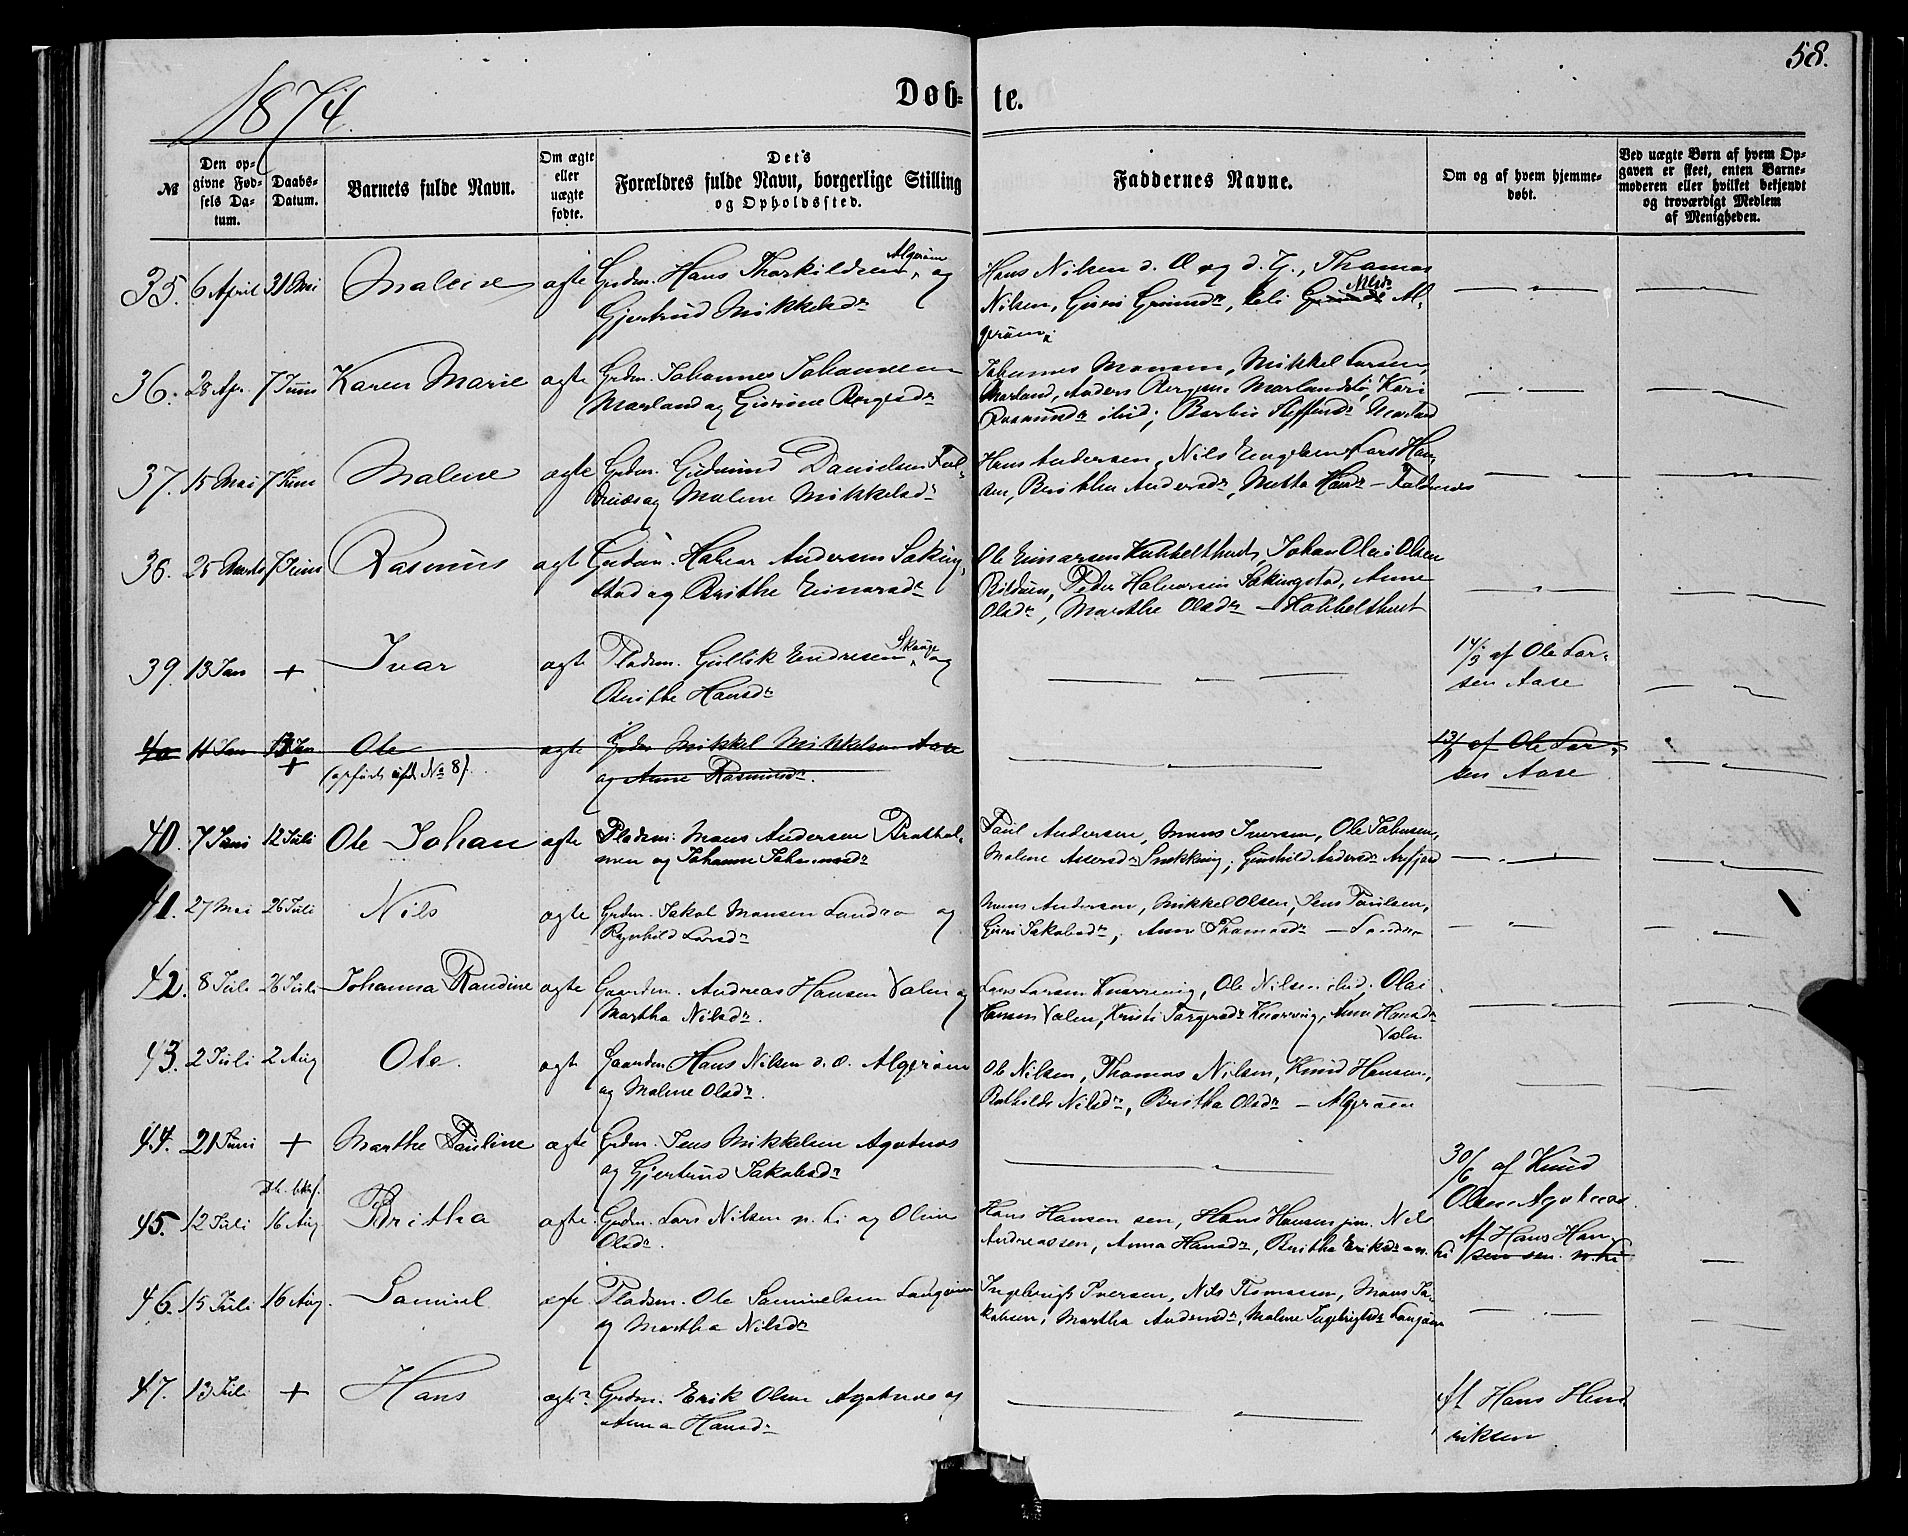 58.
1874.
Døb- te.
№
Den op-
givne Fød-
sels Da-
tum.
Daabs-
Datum.
Barnets fulde Navn.
Om ægte
eller
uægte
fødte.
Det's
Forældres fulde Navn, borgerlige Stilling
og Opholdssted.
Faddernes Navne.
Om og af hvem hjemme-
døbt.
Ved uægte Børn af hvem Op-
gaven er skeet, enten Barne-
moderen eller hvilket bekjendt
og troværdigt Medlem
af Menigheden.
35. 6 April 31 Mai Malene ægte Grdm. Hans Thorkildsen Algerøen og
Gjertrud Mikkelsdr
Hans Nilsen d. Æ og d. Y., Thomas
Nilsen, Guri Grimsdr, Eli Nilsdr Al-
gerøen.
36. 28 Apr. 7 Juni Karen Marie ægte Grdm. Johannes Johannesen
Morland og
Johannes Monsen, Mikkel Larsen
Morland, Anders Kari
Rasmusdr ibid; Steffensdr
37. 15 Mai 7 Juni Malene ægte Grdm. Gudmund Danielsen Fold-
næs og Malene Mikkelsdr
Hans Andersen, Nils Lars Han-
sen, Brithe Andersdr, Metta Hansdr – Foldnæs
38. 7 Juni Rasmus ægt Grdm. Halvor Andersen Seking-
stad og Brithe Einarsdr
Ole Einarsen Johan Olai Olsen
Peder Halvorsen Sekingstad, Anne
Olsdr, Marthe Olsdr –
39. 13 Jan + Ivar ægte Pladsm. Gullik Endresen Skauge og
Brithe Hansdr
af Ole Lar-
sen Aase
40 11 Jan 13 Jan + Ole ægte Grdm Mikkel Mikkelsen Aase
(opført No 8).
og Anne Rasmusdr.
13/1 af Ole Lar-
sen Aase
40. 7 Juni 12 Juli Ole Johan ægte Pladsm. Mons Andersen Brathol-
men og Johanne Johannesdr
Paul Andersen, Mons Iversen, Ole Johnsen,
Malene Gunhild Andersdr
41. 27 Mai 26 Juli Nils ægte Grdm. Jakob Monsen Landro og
Ragnhild Larsdr
Mons Andersen, Mikkel Olsen, Jens Paulsen,
Guri Jakobsdr, Anne Thomasdr – Landro
42. 8 Juli 26 Juli Johanna Randine ægte Gaardm. Andreas Hansen Valen og
Martha Nilsdr.
Lars Larsen Knarrevig, Ole Nilsen ibid. Olai
Hansen Valen, Kristi Knarrevig, Anne Hansdr
Valen
43. 2 Juli 2 Aug Ole. ægt Gaardm Hans Nilsen d. Æ. Algerøen
og Malene Olsdr.
Ole Nilsen, Thomas Nilsen, Knud Hansen,
Bothilde Nilsdr, Britha Olsdr – Algerøen
44. 21 Juni + Marthe Pauline ægte Grdm. Jens Mikkelsen Agotnæs
og Gjertrud Jakobsdr
30/6 af Knud
Olsen Agotnæs.
45. 12 Juli 16 Aug Britha ægte Grdm. Lars Nilsen n. Li og Oline
Olsdr.
Hans Hansen sen, Hans Hansen jun. Nils
Andreassen, Anna Hansdr, Britha Eriksdr – n. Li
Af Hans Han-
sen sen. n. Li
46. 15 Juli 16 Aug. Samuel ægte Pladsm. Ole Samuelsen Langøen
og Martha Nilsdr
Ingebrigt Iversen, Nils Thomassen, Mons Ja-
kobsen, Martha Andersdr, Malene Ingebrigtsdr Langøen
47. 13 Juli + Hans ægte Grdm. Erik Olsen Agotnæs og
Anna Hansdr
Af Hans Hend
riksen